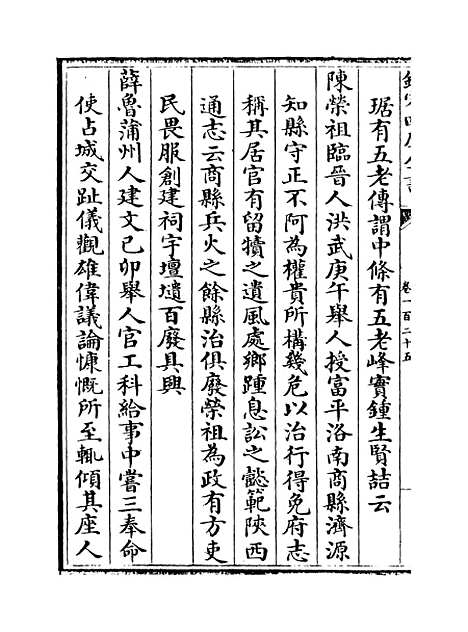 琚有五老傳謂中條有五老峰實鍾生賢喆云
陳榮祖臨晉人洪武庚午舉人授富平洛南商縣濟源
知縣守正不阿為權貴所構幾危以治行得免府志
稱其居官有留犢之遺風處鄉踵息訟之懿範陜西
通志云商縣兵火之餘縣治俱廢榮祖為政有方吏
民畏服創建祠宇壇壝百廢具興
薛魯蒲州人建文己卯舉人官工科給事中嘗三奉命
使占城交趾儀觀雄偉議論慷慨所至輒傾其座人
卷一百二十五